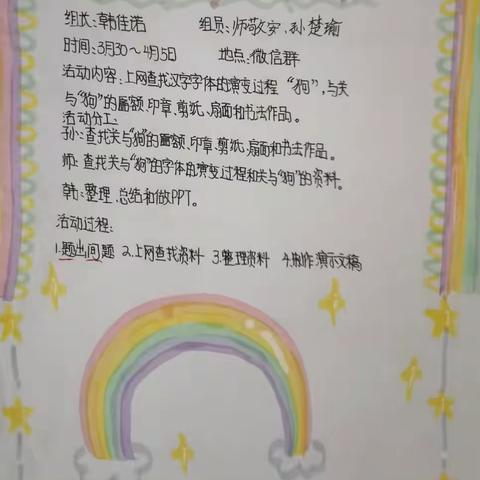 组长:韩佳诺 组员:师敬安、孙楚瑜
时间:3月30～4月5日 地点:微信群
活动内容:上网查找汉字字体的演变过程“狗”,与关
与“狗”的匾额、印章、剪纸、扇面和书法作品。
活动分工:
孙:查找关与“狗”的匾额、印章、剪纸、扇面和书法作品。
师:查找关与“狗”的字体的演变过程和关与“狗”的资料。
韩:整理、总结和做PPT。
活动过程:
1.题出问题 2.上网查找资料 3.整理资料 4.制作演示文稿